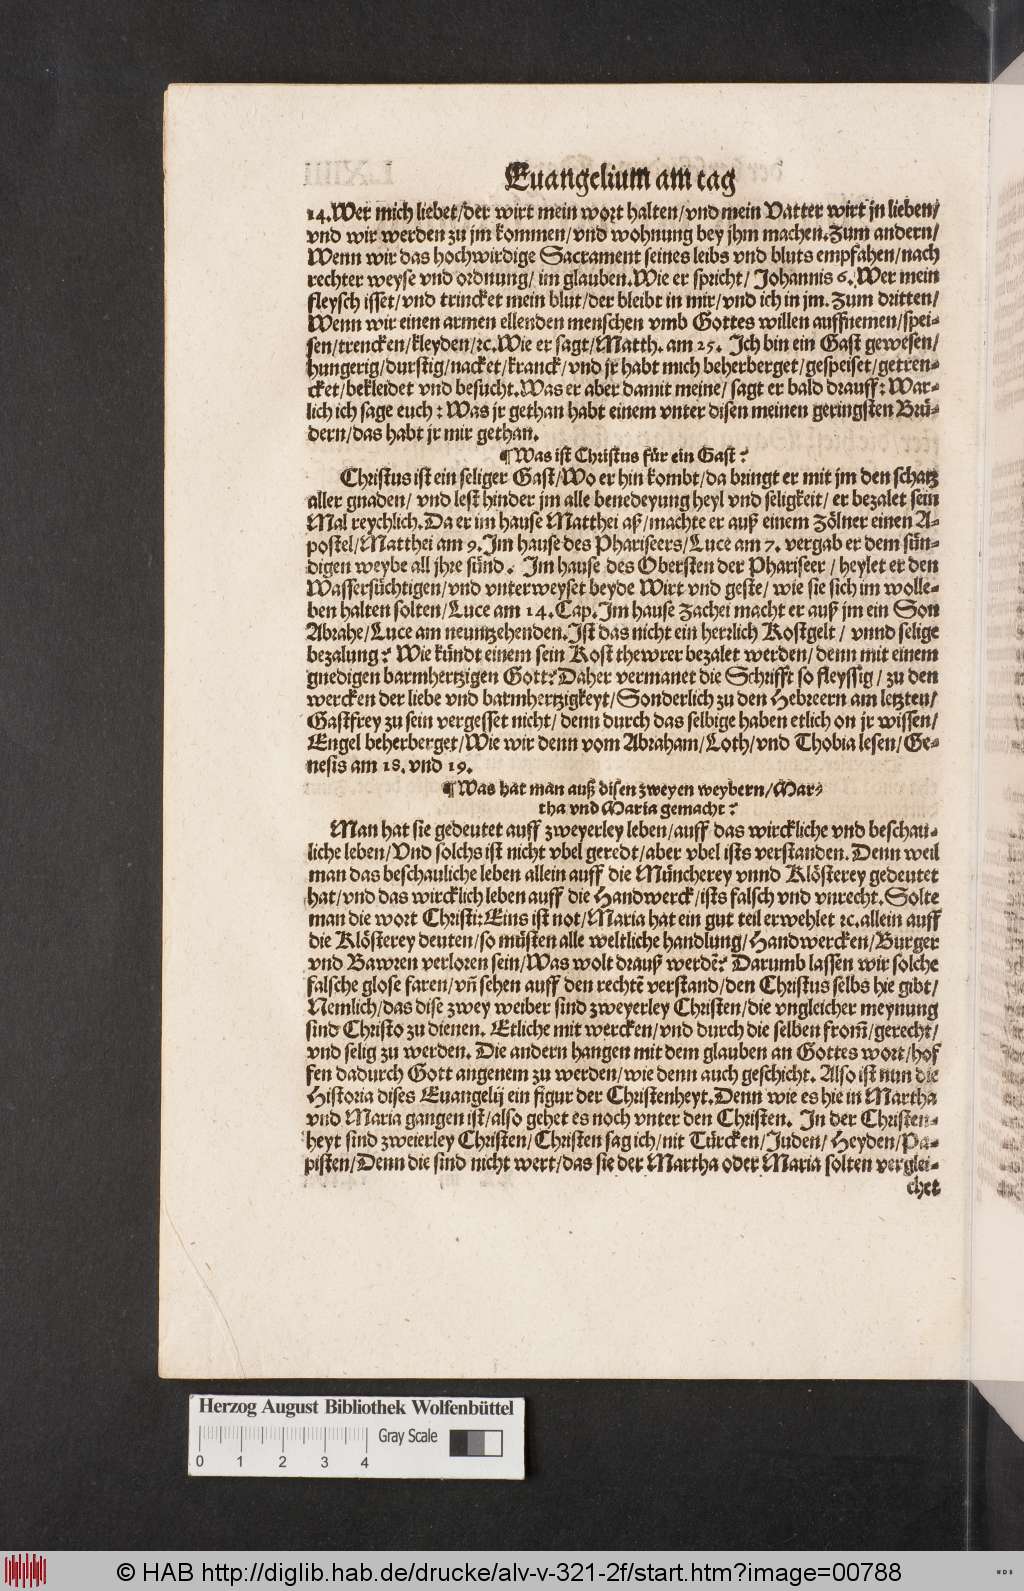 Euangelium am tag
14. Wer mich liebet/der wirt mein wort halten/vnd mein Vatter wirt jn lieben/
vnd wir werden zu jm kommen/vnd wohnung bey jhm machen. Zum andern/
Wenn wir das hochwirdige Sacrament seines leibs vnd bluts empfahen/nach
rechter weyse vnd ordnung/ im glauben. Wie er spricht/ Johannis 6. Wer mein
fleysch isset/vnd trincket mein blut/der bleibt in mir/vnd ich in jm. Zum dritten/
Wenn wir einen armen ellenden menschen vmb Gottes willen auffnemen/spei-
sen/trencken/kleyden/ꝛc. Wie er sagt/Matth. am 25. Ich bin ein Gast gewesen/
hungerig/durstig/nacket/kranck/vnd jr habt mich beherberget/gespeiset/getren-
cket/bekleidet vnd besucht. Was er aber damit meine/ sagt er bald drauff: War-
lich ich sage euch: Was jr gethan habt einem vnter disen meinen geringsten Brü-
dern/das habt jr mir gethan.
¶ Was ist Christus für ein Gast?
Christus ist ein seliger Gast/Wo er hin kombt/da bringt er mit jm den schatz
aller gnaden/ vnd lest hinder jm alle benedeyung heyl vnd seligkeit/ er bezalet sein
Mal reychlich. Da er im hause Matthei aß/machte er auß einem Zölner einen A-
postel/Matthei am 9. Im hause des Phariseers/Luce am 7. vergab er dem sün-
digen weybe all jhre sünd. Im hause des Obersten der Phariseer/ heylet er den
Wassersüchtigen/vnd vnterweyset beyde Wirt vnd geste/ wie sie sich im wolle-
ben halten solten/Luce am 14. Cap. Im hause Zachei macht er auß jm ein Son
Abrahe/Luce am neuntzehenden. Ist das nicht ein herrlich Kostgelt/ vnnd selige
bezalung? Wie kündt einem sein Kost thewrer bezalet werden/ denn mit einem
gnedigen barmhertzigen Gott? Daher vermanet die Schrifft so fleyssig/ zu den
wercken der liebe vnd barmhertzigkeyt/Sonderlich zu den Hebreern am letzten/
Gastfrey zu sein vergesset nicht/ denn durch das selbige haben etlich on jr wissen/
Engel beherberget/Wie wir denn vom Abraham/Loth/vnd Thobia lesen/Ge-
nesis am 18. vnd 19.
¶ Was hat man auß disen zweyen weybern/Mar-
tha vnd Maria gemacht?
Man hat sie gedeutet auff zweyerley leben/auff das wirckliche vnd beschau-
liche leben/Vnd solchs ist nicht vbel geredt/aber vbel ists verstanden. Denn weil
man das beschauliche leben allein auff die Müncherey vnnd Klösterey gedeutet
hat/vnd das wircklich leben auff die Handwerck/ists falsch vnd vnrecht. Solte
man die wort Christi: Eins ist not/Maria hat ein gut teil erwehlet ꝛc. allein auff
die Klösterey deuten/so müsten alle weltliche handlung/Handwercken/Burger
vnd Bawren verloren sein/Was wolt drauß werdẽ? Darumb lassen wir solche
falsche glose faren/vñ sehen auff den rechtẽ verstand/den Christus selbs hie gibt/
Nemlich/das dise zwey weiber sind zweyerley Christen/die vngleicher meynung
sind Christo zu dienen. Etliche mit wercken/vnd durch die selben from̃/gerecht/
vnd selig zu werden. Die andern hangen mit dem glauben an Gottes wort/hof
fen dadurch Gott angenem zu werden/wie denn auch geschicht. Also ist nun die
Historia dises Euangelij ein figur der Christenheyt. Denn wie es hie in Martha
vnd Maria gangen ist/also gehet es noch vnter den Christen. In der Christen-
heyt sind zweierley Christen/Christen sag ich/nit Türcken/Juden/Heyden/Pa-
pisten/Denn die sind nicht wert/das sie der Martha oder Maria solten verglei-
chet
Herzog August Bibliothek Wolfenbüttel
Gray Scale
0 1 2 3 4
© HAB http://diglib.hab.de/drucke/alv-v-321-2f/start.htm?image=00788